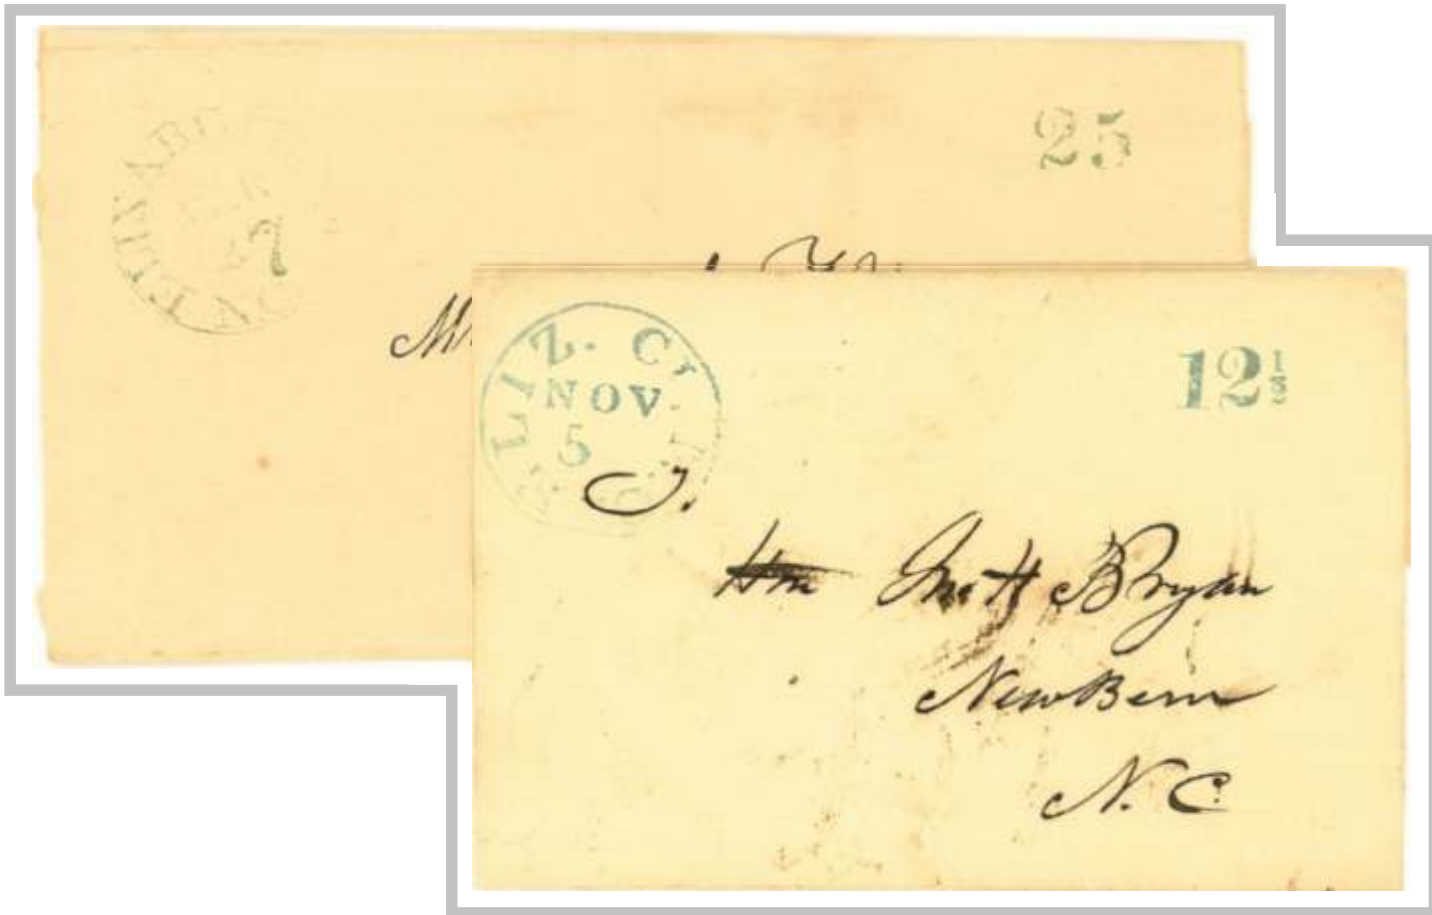 25
7
ELIZ. CY
NOV
5
12½
J.
Hon Jno H Bryan
NewBern
N. C.